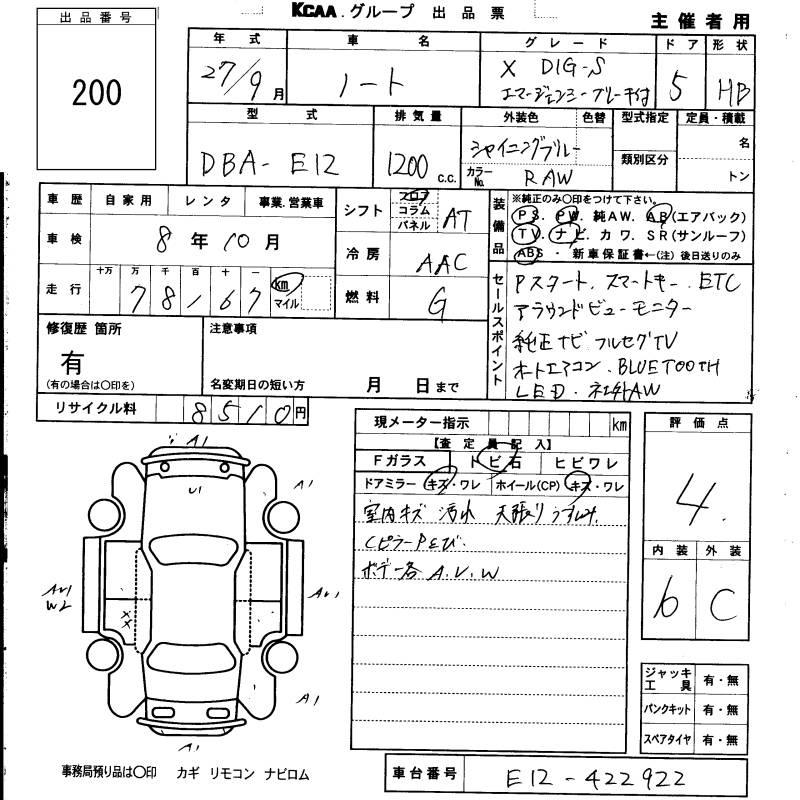 KCAA.グループ 出品票
主催者用
出品番号
200
年式 車名 グレード ドア 形状
27/9月 ノート X DIG-S 5 HB
エマージェンシーブレーキ付
型式 排気量 外装色 色替 型式指定 定員・積載
DBA-E12 1200 c.c. シャイニングブルー 名
カラーNo. RAW 類別区分 トン
車歴 自家用 レンタ 事業.営業車
車検 8年10月
走行 十万 万 千 百 十 一
78167 km マイル
シフト フロア コラム パネル AT
冷房 AAC
燃料 G
装備品
※純正のみ○印をつけて下さい。
PS. PW. 純AW. AB(エアバック)
TV. ナビ. カワ. SR(サンルーフ)
ABS・新車保証書←(注) 後日送りのみ
セールスポイント
Pスタート. スマートキー. ETC
アラウンドビューモニター
純正ナビ フルセグTV
オートエアコン. BLUETOOTH
LED. 社外AW
修復歴 箇所
有
(有の場合は○印を)
注意事項
名変期日の短い方 月 日まで
リサイクル料 8510円
現メーター指示 km
【査定員記入】
Fガラス トビ石 ヒビワレ
ドアミラー キズ・ワレ ホイール(CP) キズ・ワレ
室内キズ 汚れ 天張りうすしみ.
Cピラーpとび.
ボデー各 A.U.W
評価点
4.
内装 外装
6 C
ジャッキ工具 有・無
パンクキット 有・無
スペアタイヤ 有・無
A1
U1
A1
A1
W2
XX
A1
A1
事務局預り品は○印 カギ リモコン ナビロム
車台番号 E12-422922